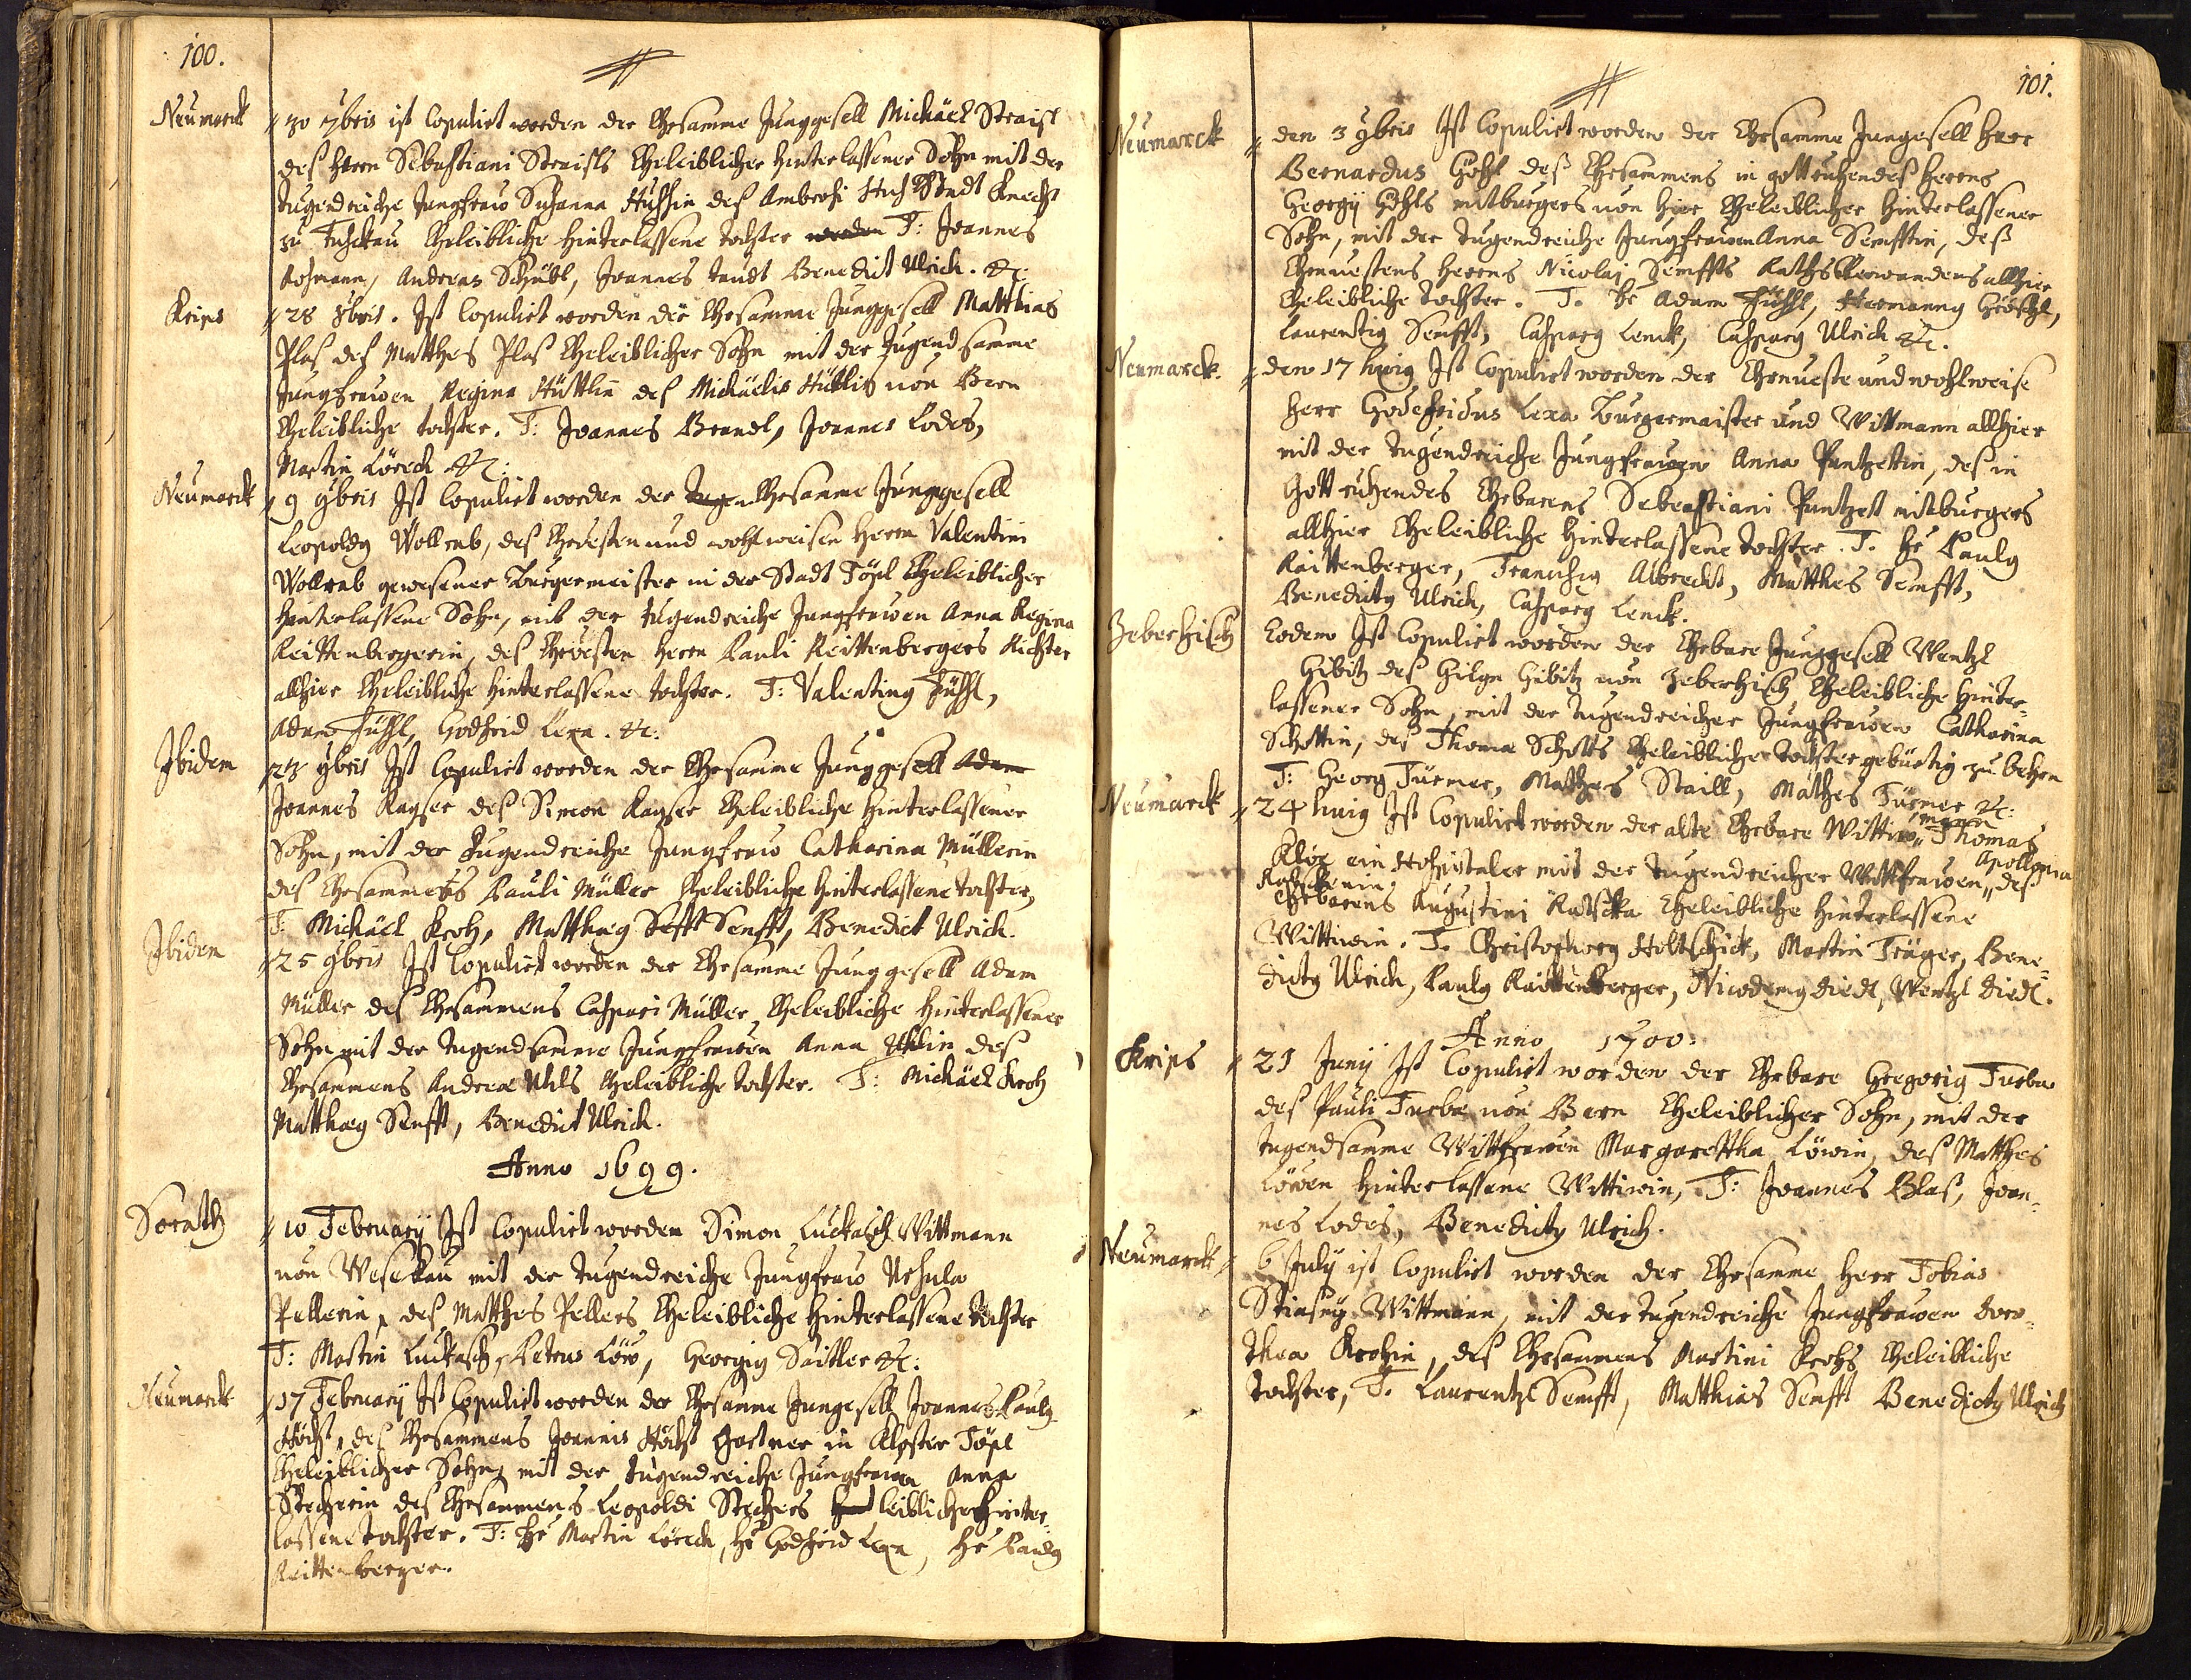 100.
Neumarck
30 7bris ist Copulirt worden der Ehrsamme Junggesell Michäel Straisl
deß Herrn Sebastiani Straisls Eheleiblicher hinterlassener Sohn mit der
tugendreiche Jungfraw Susanna deß Ambrosi Stadt Knecht
zu Eheleibliche hinterlassene tochter worden T: Joannes
Andreas Schübl, Joannes Benedict Ulrich. &c:
Krips
28 8bris. Ist Copulirt worden der Ehrsamme Junggesell Matthias
Plaß deß Matthes Plaß Eheleiblicher Sohn mit der Tugendsamme
Jungfrawen Regina Hüttlin deß Michäelis Hüttls von Bern
Eheleibliche tochter. T: Joannes Brandl, Joannes Lodes,
Martin Lörch &c:
Neumarck
9 9bris Ist Copulirt worden der Tugen Ehrsamme Junggesell
Leopoldg Wollrab, deß Ehrvesten und wohl weisen Herrn Valentini
Wollrab gewesener Burgermeister in der Stadt Töpl Eheleiblicher
hinterlassene Sohn, mit der tugendreiche Jungfrawen Anna Regina
Reittenbergerin, deß Ehrvesten Herrn Pauli Reittenbergers Richter
allhier Eheleibliche hinterlassene tochter. T: Valenting Füssl,
Adam Füssl, Godfrid Lexa. &c:
Ibidem
23 9bris Ist Copulirt worden der Ehrsamme Junggesell Adam
Joannes Kayser deß Simon Kayser Eheleibliche hinterlassener
Sohn, mit der Tugendreiche Jungfraw Catharina Müllerin
deß Ehrsammens Pauli Müller Eheleibliche hinterlassene tochter,
T: Michäel Kroh, Matthaeg Sefft Senfft, Benedict Ulrich.
Ibidem
25 9bris Ist Copulirt worden der Ehrsamme Junggesell Adam
Müller deß Ehrsammens Caspari Müller Eheleibliche hinterlassener
Sohn mit der tugendsamme Jungfrawen Anna Uhlin deß
Ehrsammens Andreae Uhls Eheleibliche tochter. T: Michäel Kroh
Matthaeg Senfft, Benedict Ulrich.
Anno 1699.
Sorath
10 February Ist Copulirt worden Simon Luckasch Wittmann
von Wesekau mit der tugendreiche Jungfraw Ursula
Pellerin, deß Matthes Pellers Eheleibliche hinterlassene tochter
T: Martin Luckasch, Petrus Löw, Georgig Sattler &c:
Neumarck
17 February Ist Copulirt worden der Ehrsamme Jungesell Joannes Paulg
Höchst, deß Ehrsammens Joannis Höchst Gartner in Kloster Töpl
Eheleiblicher Sohn, mit der tugendreiche Jungfrawen Anna
Stecherin deß Ehrsammens Leopoldi Stechers leibliche hinter-
lassene tochter. T: Hr Martin Lörch, Hr Godfrid Lexa, Hr Paulg
Reittenberger.
101.
Neumarck
den 3 9bris Ist Copulirt worden der Ehrsamme Jungesell Herr
Bernardus Göhl deß Ehrsammens in gott ruhendeß Herrns
Georgij Göhls mitburgers von hier Eheleiblicher hinterlassener
Sohn, mit der tugendreiche Jungfrawen Anna Semfftin, deß
Ehrnvestens Herrns Nicolaj Semffts Raths Verwandens allhier
Eheleibliche tochter. T. Hr Adam Füssl, Hermanng Gröschl,
Laurentig Semfft, Casparg Lenck, Casparg Ulrich &c.
Neumarck.
den 17 huig Ist Copulirt worden der Ehrnveste und wohlweise
Herr Godefridus Lexa Burgermaister und Wittmann allhier
mit der tugendreiche Jungfrawen Anna Pantzetin, deß in
Gott ruhendes Ehrbarens Sebastiani Pantzet mitburgers
allhier Eheleibliche hinterlassene tochter. T. Hr Paulg
Raittenberger, Francisig Albrecht, Matthes Semfft,
Benedictg Ulrich, Casparg Lenck.
Zeberhisch
Eodem Ist Copulirt worden der Ehrbare Junggesell Wentzl
Gibitz deß Gilgn Gibitz von Zeberhisch Eheleibliche hinter-
lassener Sohn, mit der tugendreicher Jungfrawen Catharina
Schottin, deß Thoma Schotts Eheleibliche tochter gebürtig zu
T: Georg Türmer, Matthes Staill, Mathes Türmer &c:
Neumarck
24 huig Ist Copulirt worden der alte Ehrbare Wittiw mann Thomas
Klor ein Hospitaler mit der tugendreicher Wittfrawen Apollonia
Ratschkin deß
Ehrbarens Augustini Ratschka Eheleibliche hinterlassene
Wittwin. T. Christopherg Holtschick, Martin Träger, Bene-
dictg Ulrich, Paulg Raittenberger, Nicodemg Diedl, Wentzl Diedl.
Anno 1700:
Krips
21 Junij Ist Copulirt worden der Ehrbare Gregorig Turba
deß Pauli Turba von Bern Eheleiblicher Sohn, mit der
tugendsamme Wittfrawen Margarettha Löwin, deß Matthes
Löwen hinterlassene Wittiwin, T: Joannes Blaß, Joan-
nes Lodes, Benedictg Ulrich.
Neumarck
6 July ist Copulirt worden der Ehrsamme Herr Tobias
Stiasny Wittmann, mit der tugendreiche Jungfrawen Doro-
thea Krohin, deß Ehrsammens Martini Krohs Eheleibliche
tochter, T. Laurentzl Semfft, Matthias Senfft Benedictg Ulrich